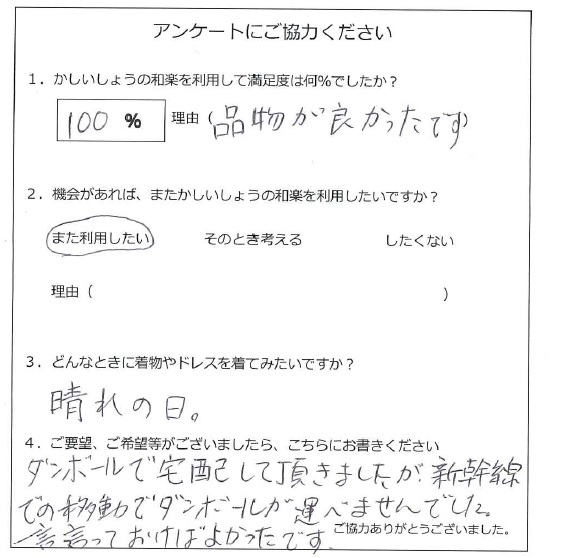 アンケートにご協力ください
1．かしいしょうの和楽を利用して満足度は何%でしたか？
100 % 理由（品物が良かったです）
2．機会があれば、またかしいしょうの和楽を利用したいですか？
また利用したい そのとき考える したくない
理由（ ）
3．どんなときに着物やドレスを着てみたいですか？
晴れの日。
4．ご要望、ご希望等がございましたら、こちらにお書きください
ダンボールで宅配して頂きましたが、新幹線
での移動でダンボールが運べませんでした。
一言言っておけばよかったです。
ご協力ありがとうございました。